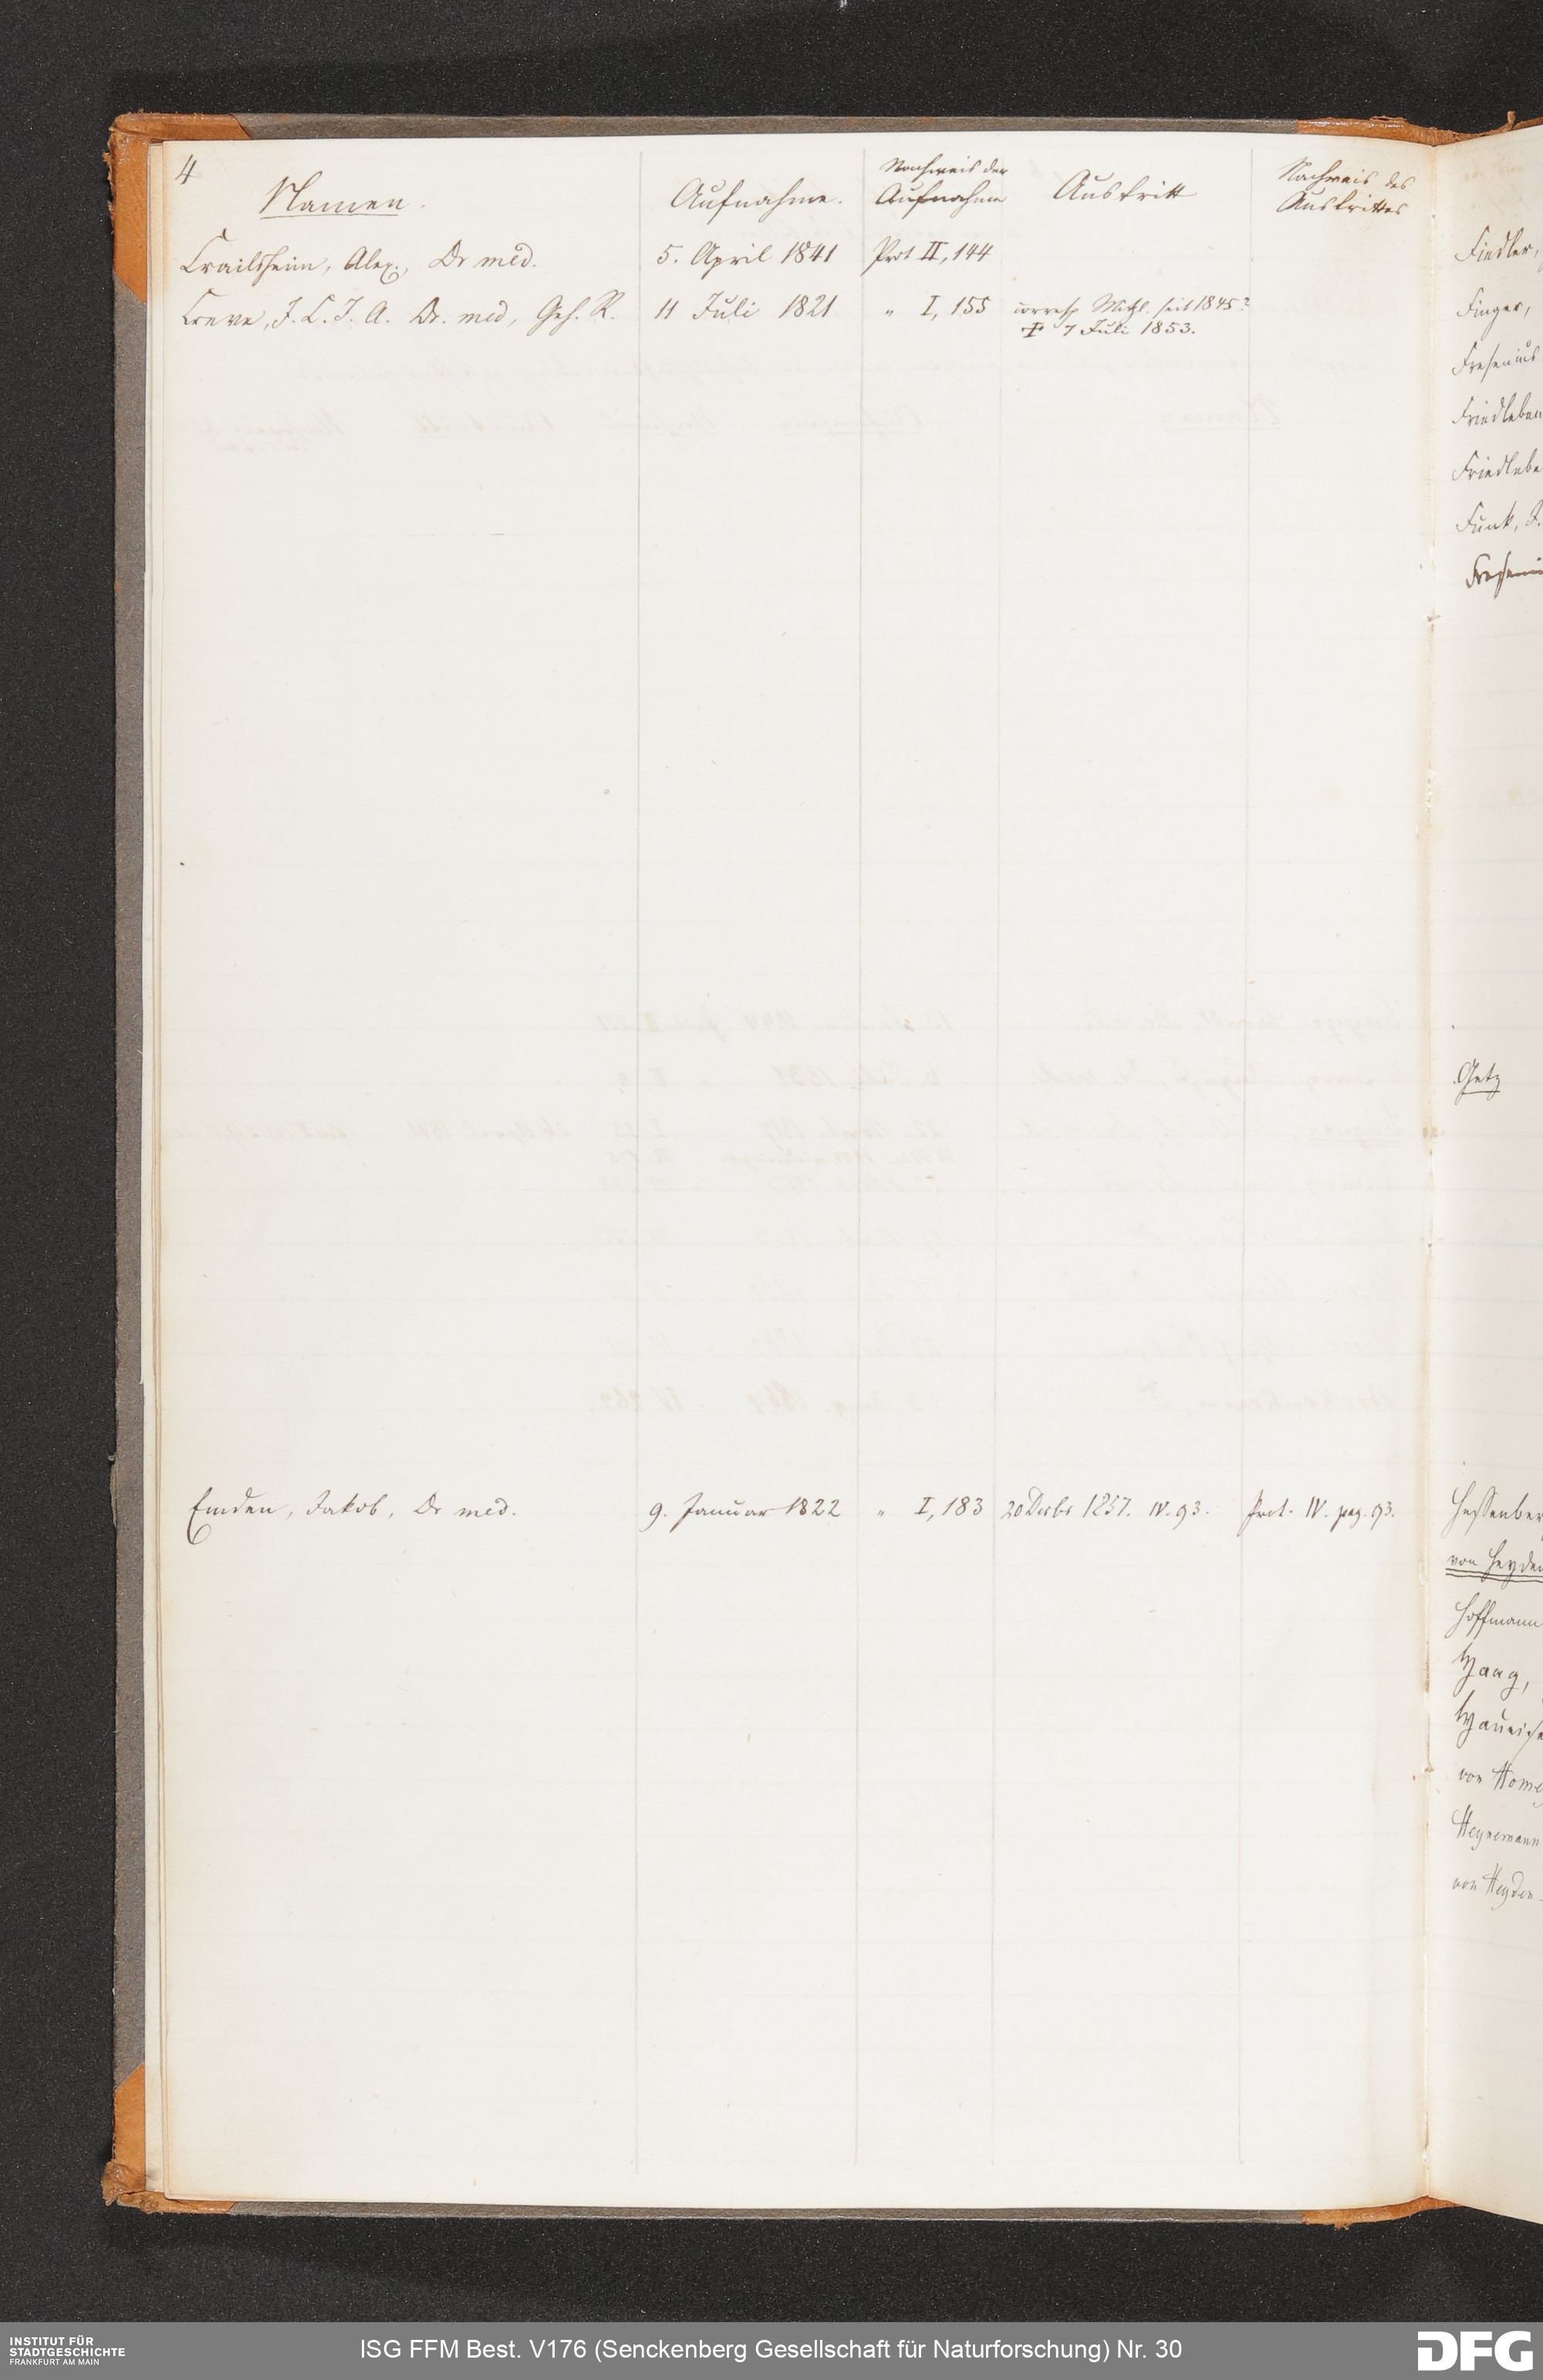 4
Namen.
Aufnahme.
Nachweis der
Aufnahme
Austritt
Nachweis des
Austrittes
Crailsheim, Alex., Dr med.
5. April 1841
Prot II, 144
Creve, J. C. I. A. Dr. med, Geh. R.
11 Juli 1821
" I, 155
corresp Mitgl. seit 1845?
† 7 Juli 1853.
Emden, Jakob, Dr med.
9. Januar 1822
" I, 183
20 Decbr 1857. IV. 93.
Prot. IV. pag. 93.
Fiedler,
Finger,
Fresenius
Friedleben
Friedlebe
Funk, J.
Freseni
Getz
Hessenber
von Heyden
Hoffmann
Haag,
von Home
Heynemann
von Heyden
INSTITUT FÜR
STADTGESCHICHTE
FRANKFURT AM MAIN
ISG FFM Best. V176 (Senckenberg Gesellschaft für Naturforschung) Nr. 30
DFG